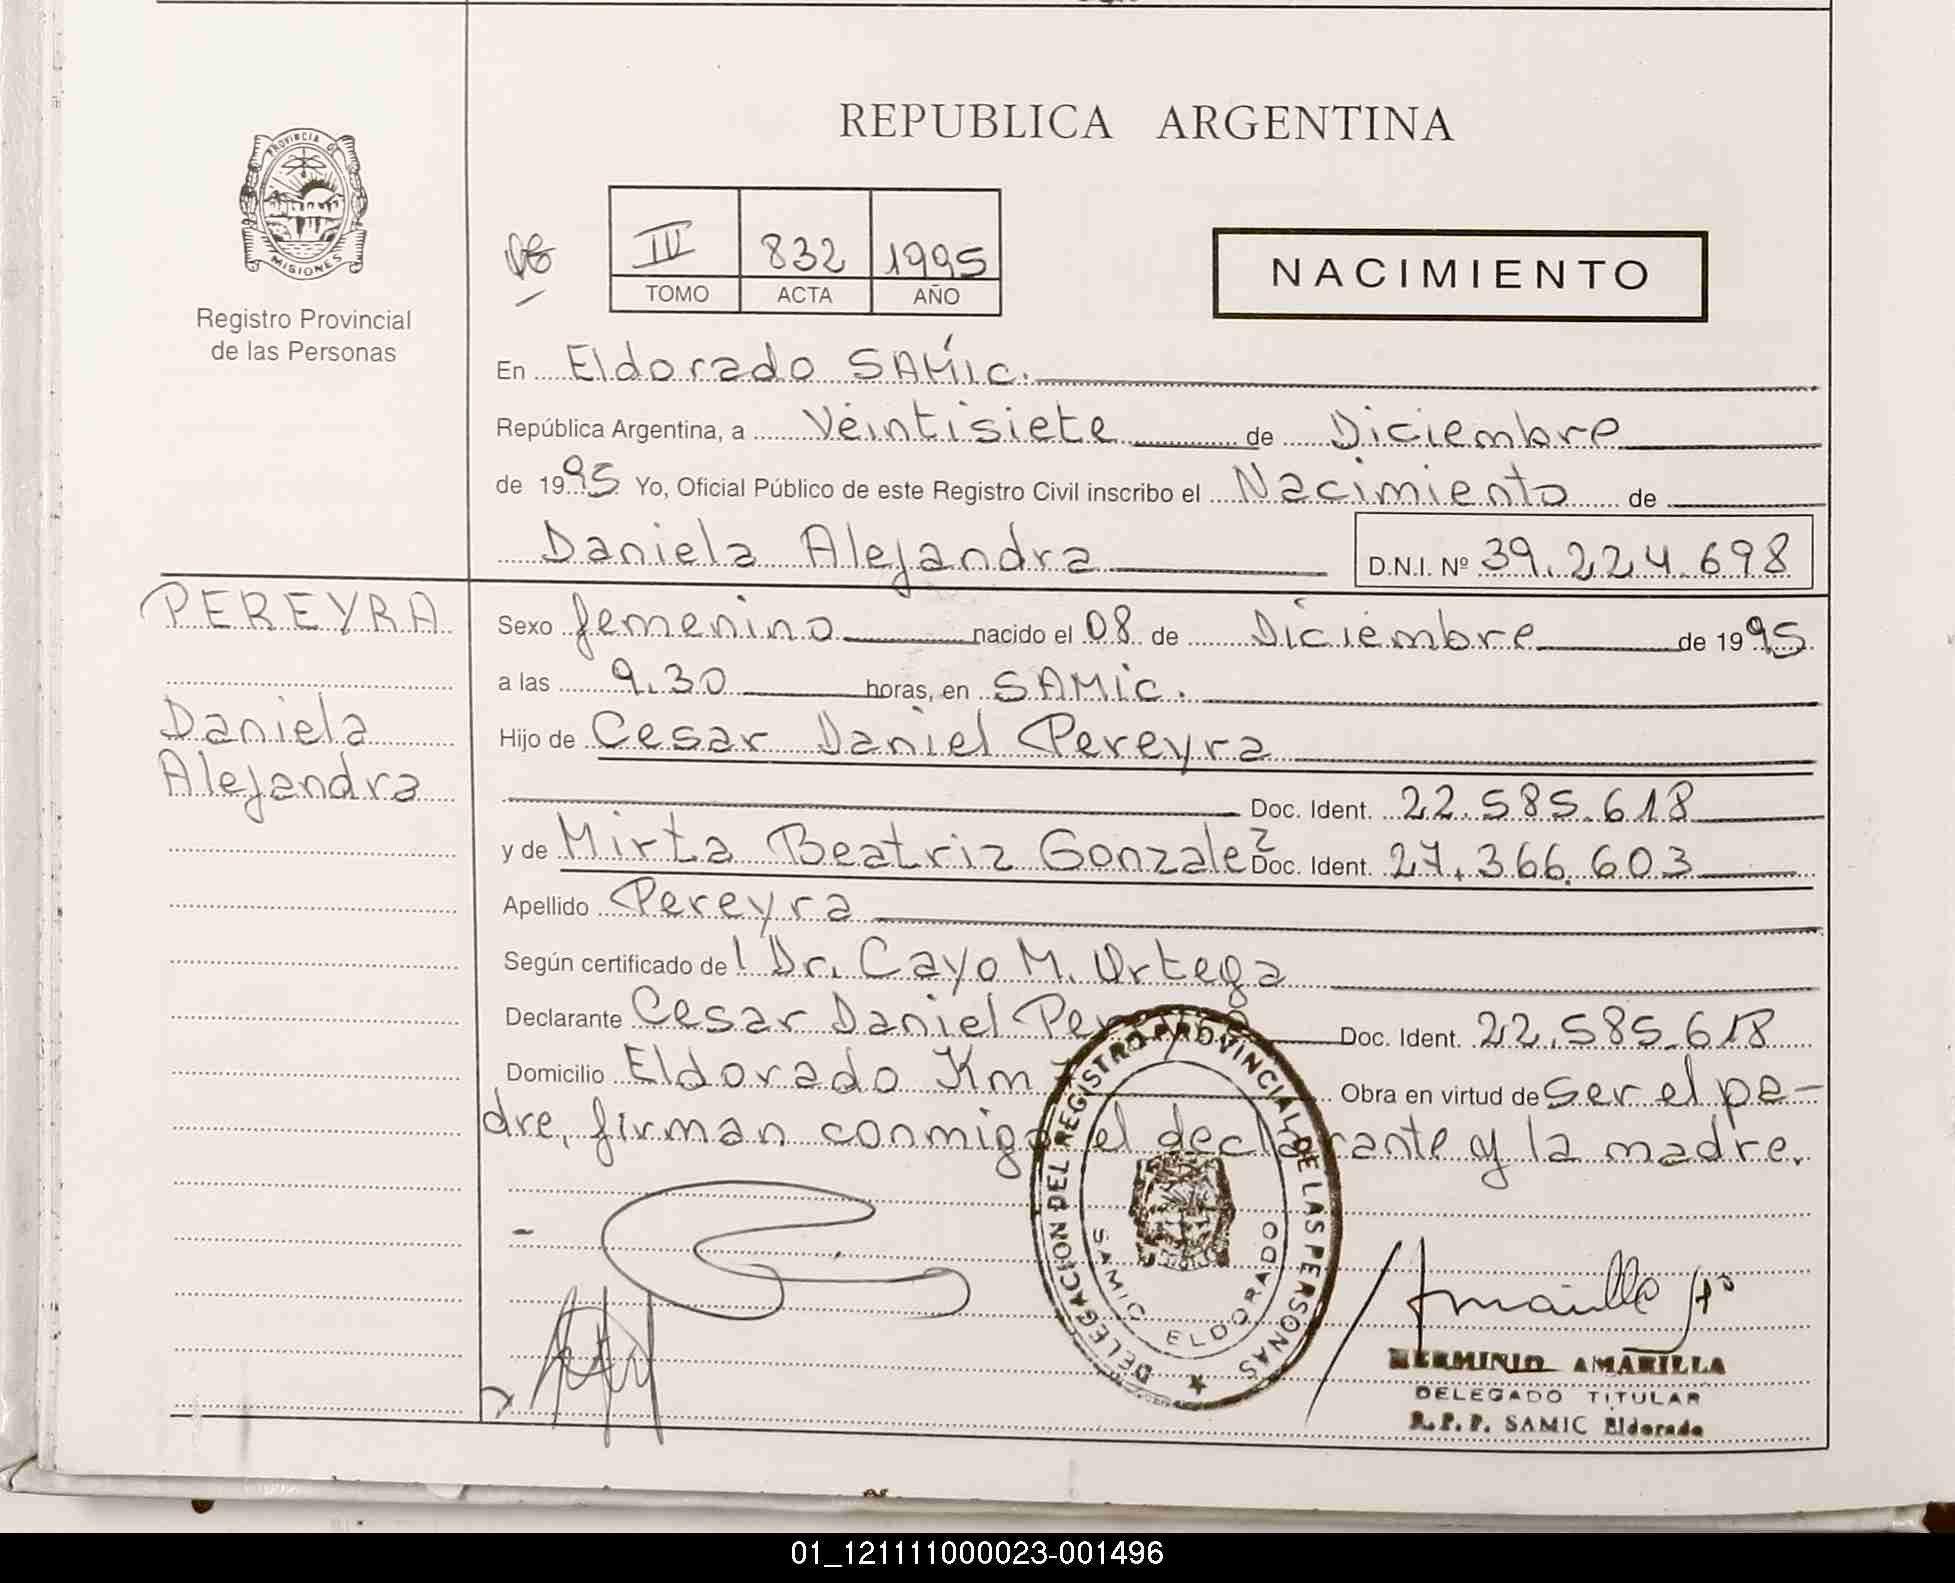 REPUBLICA ARGENTINA
PROVINCIA DE
MISIONES
Registro Provincial
de las Personas
III 832 1995
TOMO ACTA AÑO
NACIMIENTO
En Eldorado SAMic.
República Argentina, a Veintisiete de Diciembre
de 1995 Yo, Oficial Público de este Registro Civil inscribo el Nacimiento de
Daniela Alejandra D.N.I. Nº 39.224.698
PEREYRA
Daniela
Alejandra
Sexo femenino nacido el 08 de Diciembre de 1995
a las 9.30 horas, en SAMic.
Hijo de Cesar Daniel Pereyra
Doc. Ident. 22.585.618
y de Mirta Beatriz Gonzalez Doc. Ident. 27.366.603
Apellido Pereyra
Según certificado del Dr. Cayo M. Ortega
Declarante Cesar Daniel Pereyra Doc. Ident. 22.585.618
Domicilio Eldorado Km Obra en virtud de ser el pa-
dre, firman conmigo el declarante y la madre.
DELEGACION DEL REGISTRO PROVINCIAL DE LAS PERSONAS
SAMIC ELDORADO
Amarilla Hº
HERMINIO AMARILLA
DELEGADO TITULAR
R.P.P. SAMIC Eldorado
01_121111000023-001496